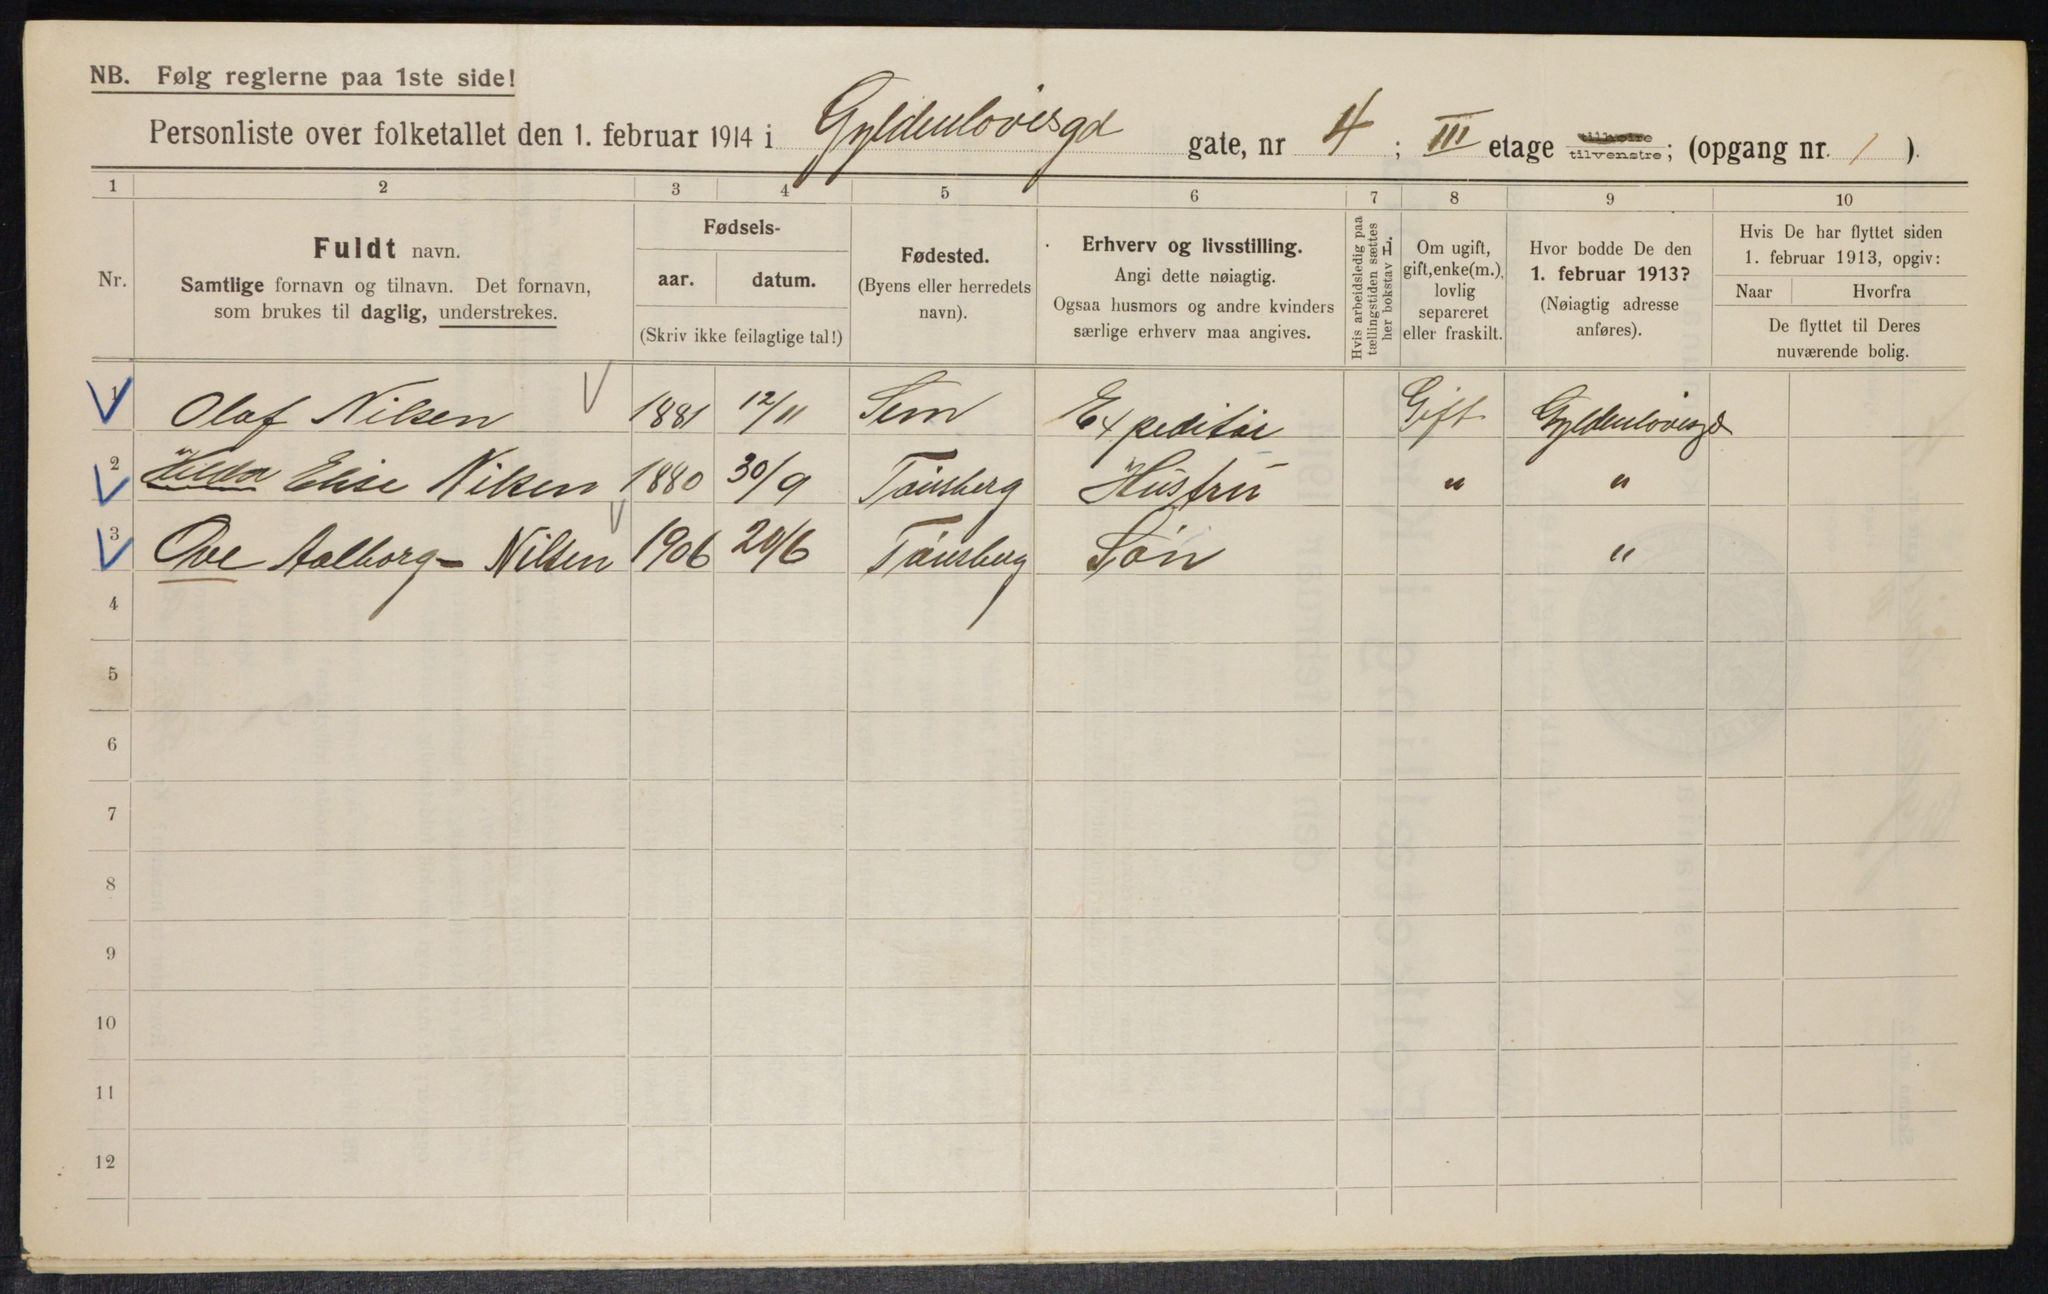 NB. Følg reglerne paa 1ste side!
Personliste over folketallet den 1. februar 1914 i Gyldenløvesgd gate, nr 4 ; III etage tilvenstre; (opgang nr. 1 ).
1 2 3 4 5 6 7 8 9 10
Nr.
Fuldt navn.
Samtlige fornavn og tilnavn. Det fornavn,
som brukes til daglig, understrekes.
Fødsels-
aar. datum.
(Skriv ikke feilagtige tal!)
Fødested.
(Byens eller herredets
navn).
Erhverv og livsstilling.
Angi dette nøiagtig.
Ogsaa husmors og andre kvinders
særlige erhverv maa angives.
Hvis arbeidsledig paa
tællingstiden sættes
her bokstav L.
Om ugift,
gift, enke(m.),
lovlig
separeret
eller fraskilt.
Hvor bodde De den
1. februar 1913?
(Nøiagtig adresse
anføres).
Hvis De har flyttet siden
1. februar 1913, opgiv:
Naar Hvorfra
De flyttet til Deres
nuværende bolig.
1 Olaf Nilsen 1881 12/11 Sem Expeditør Gift Gyldenløvesgd
2 Hilda Elise Nilsen 1880 30/9 Tønsberg Hustru " "
3 Ove Aalborg - Nilsen 1906 20/6 Tønsberg Søn "
4
5
6
7
8
9
10
11
12